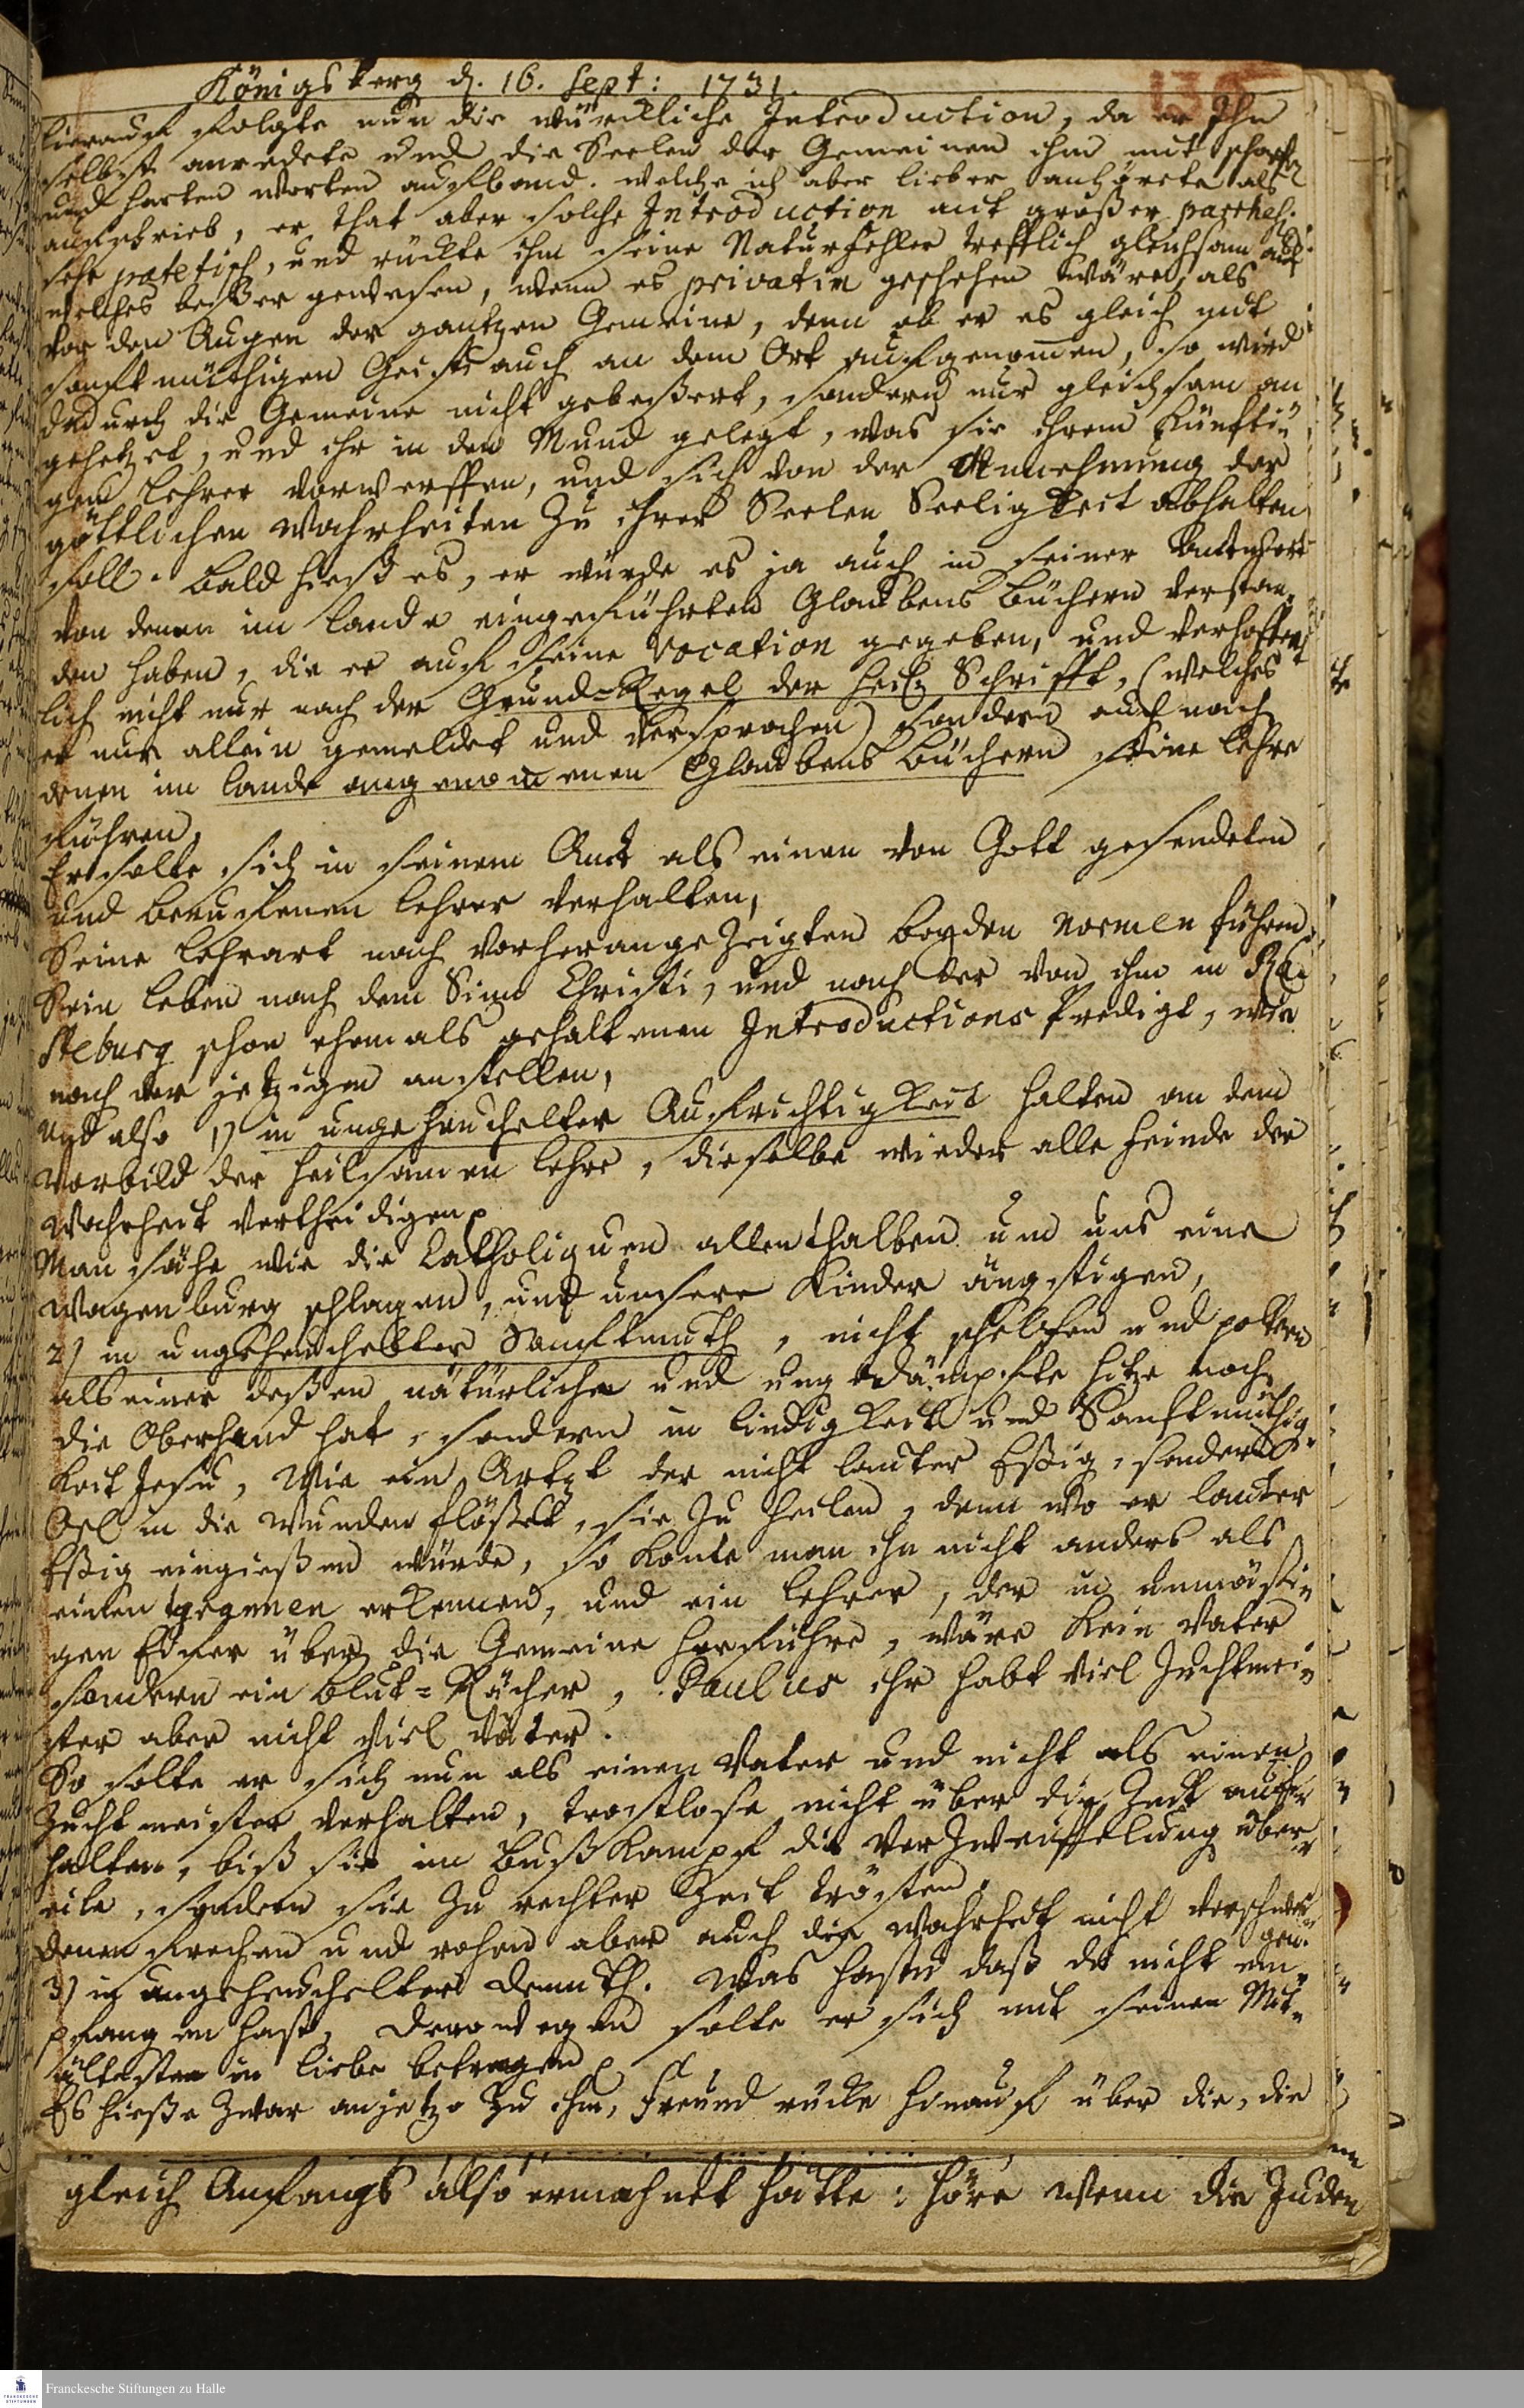 Königsberg d. 16. Sept: 1731.
hierauf folgte nun die würckliche Introduction, da er Ihn
selbst anredete und die Seelen der Gemeinen ihm mit scharffen
und harten worten aufband. welche ich aber lieber anhörete als
aufschrieb, er that aber solche Introduction mit großer parrhes.
sehr patetisch, und rückte ihm seine Naturfehler trefflich gleichsam auf
welches beßer gewesen, wenn es privatim geschehen wäre, als
vor den Augen der gantzen Gemeine, denn ob er es gleich mit
sanftmüthigen Geiste auch an dem Ort aufgenommen, so wird
dadurch die Gemeine nicht gebeßert, sondern nur gleichsam an
gehetzet, und ihr in den Mund gelegt, was sie ihrem künfti-
gen Lehrer vorwerffen, und sich von der Annehmung der
göttlichen Wahrheiten zu ihrer Seelen Seeligkeit abhalten
soll. bald hieß es, er würde es ja auch in seiner Antwort
von denen im Lande eingeführten Glaubens Büchern verstan-
den haben, die er auf seine Vocation gegeben, und verhoffent
lich nicht nur nach der Grund-Regel der heil. Schrifft, (welches
er nur allein gemeldet und versprochen) sondern auch nach
denen im Lande angenommenen Glaubens Büchern seine Lehre
führen,
Er solte sich in seinem Amt als einen von Gott gesendeten
und beruffenen Lehrer verhalten,
Seine Lehrart nach vorherangezeigten beyden Normen führen,
Sein Leben nach dem Sinn Christi, und nach der von ihm in Ra
steburg schon ehemals gehaltenen Introductions Predigt, wie
nach der jetzigen anstellen,
Und also 1) in ungeheuchelter Aufrichtigkeit halten an dem
Vorbild der heilsamen Lehre, dieselbe wieder alle Feinde der
Wahrheit vertheidigen,
Man sähe wie die Catholiquen allenthalben um uns eine
Wagenburg schlagen, und unsere Kinder ängstigen,
2) in ungeheuchelter Sanftmuth, nicht schelten und poltern
als einer deßen natürliche und ungedämpfte Hitze noch
die Oberhand hat, sondern in Lindigkeit und Sanftmüthig-
keit Jesu, wie ein Artzt der nicht lauter Eßig, sondern
Oel in die Wunden flößet, sie zu heilen, denn wo er lauter
Eßig eingießen würde, so könte man ihn nicht anders als
einen tyrannen erkennen, und ein Lehrer, der in unmäßi-
gen Eifer über die Gemeine herführe, wäre kein Vater
sondern ein Blut-Rächer, Paulus ihr habt viel Zuchtmei-
ster aber nicht viel Väter.
So solte er sich nun als einen Vater und nicht als einen
Zuchtmeister verhalten, trostlose nicht über die Zeit auf-
halten, biß sie im Bußkampf die Verzweiffelung über-
eile, sondern sie zu rechter Zeit trösten,
denen frechen und rohen aber auch die Wahrheit nicht verschwei-
gen.
3) in ungeheuchelter Demuth. Was hastu daß du nicht em-
pfangen hast, derowegen solte er sich mit seinen Mit-
ältesten in Liebe betragen,
Es hieße zwar anjetzo zu ihm, Freund rücke hinauf über die, die
gleich Anfangs also ermahnet hätte: höre wenn die Juden
Franckesche Stiftungen zu Halle